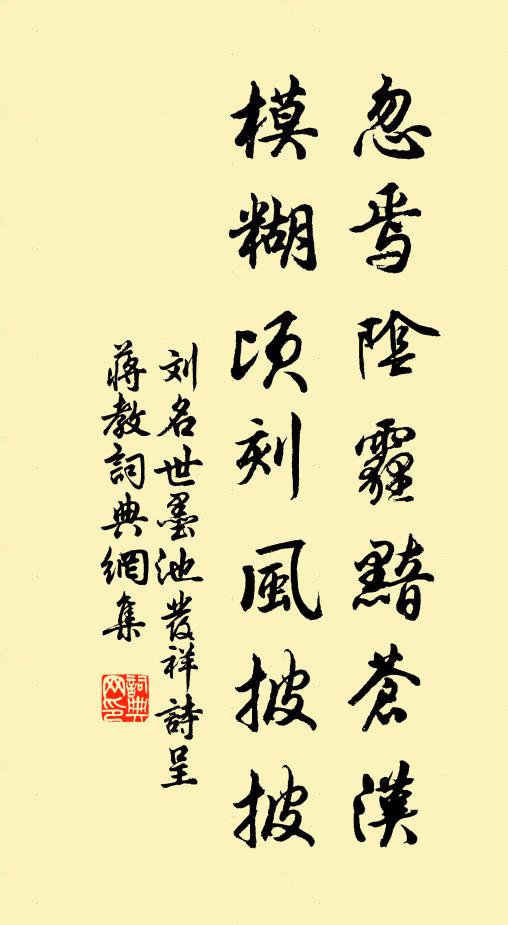 忽焉陰霾黯蒼漠
模糊頃刻風披披
刘名世墨池發祥詩呈
蔣教詞典網集
詞典网印